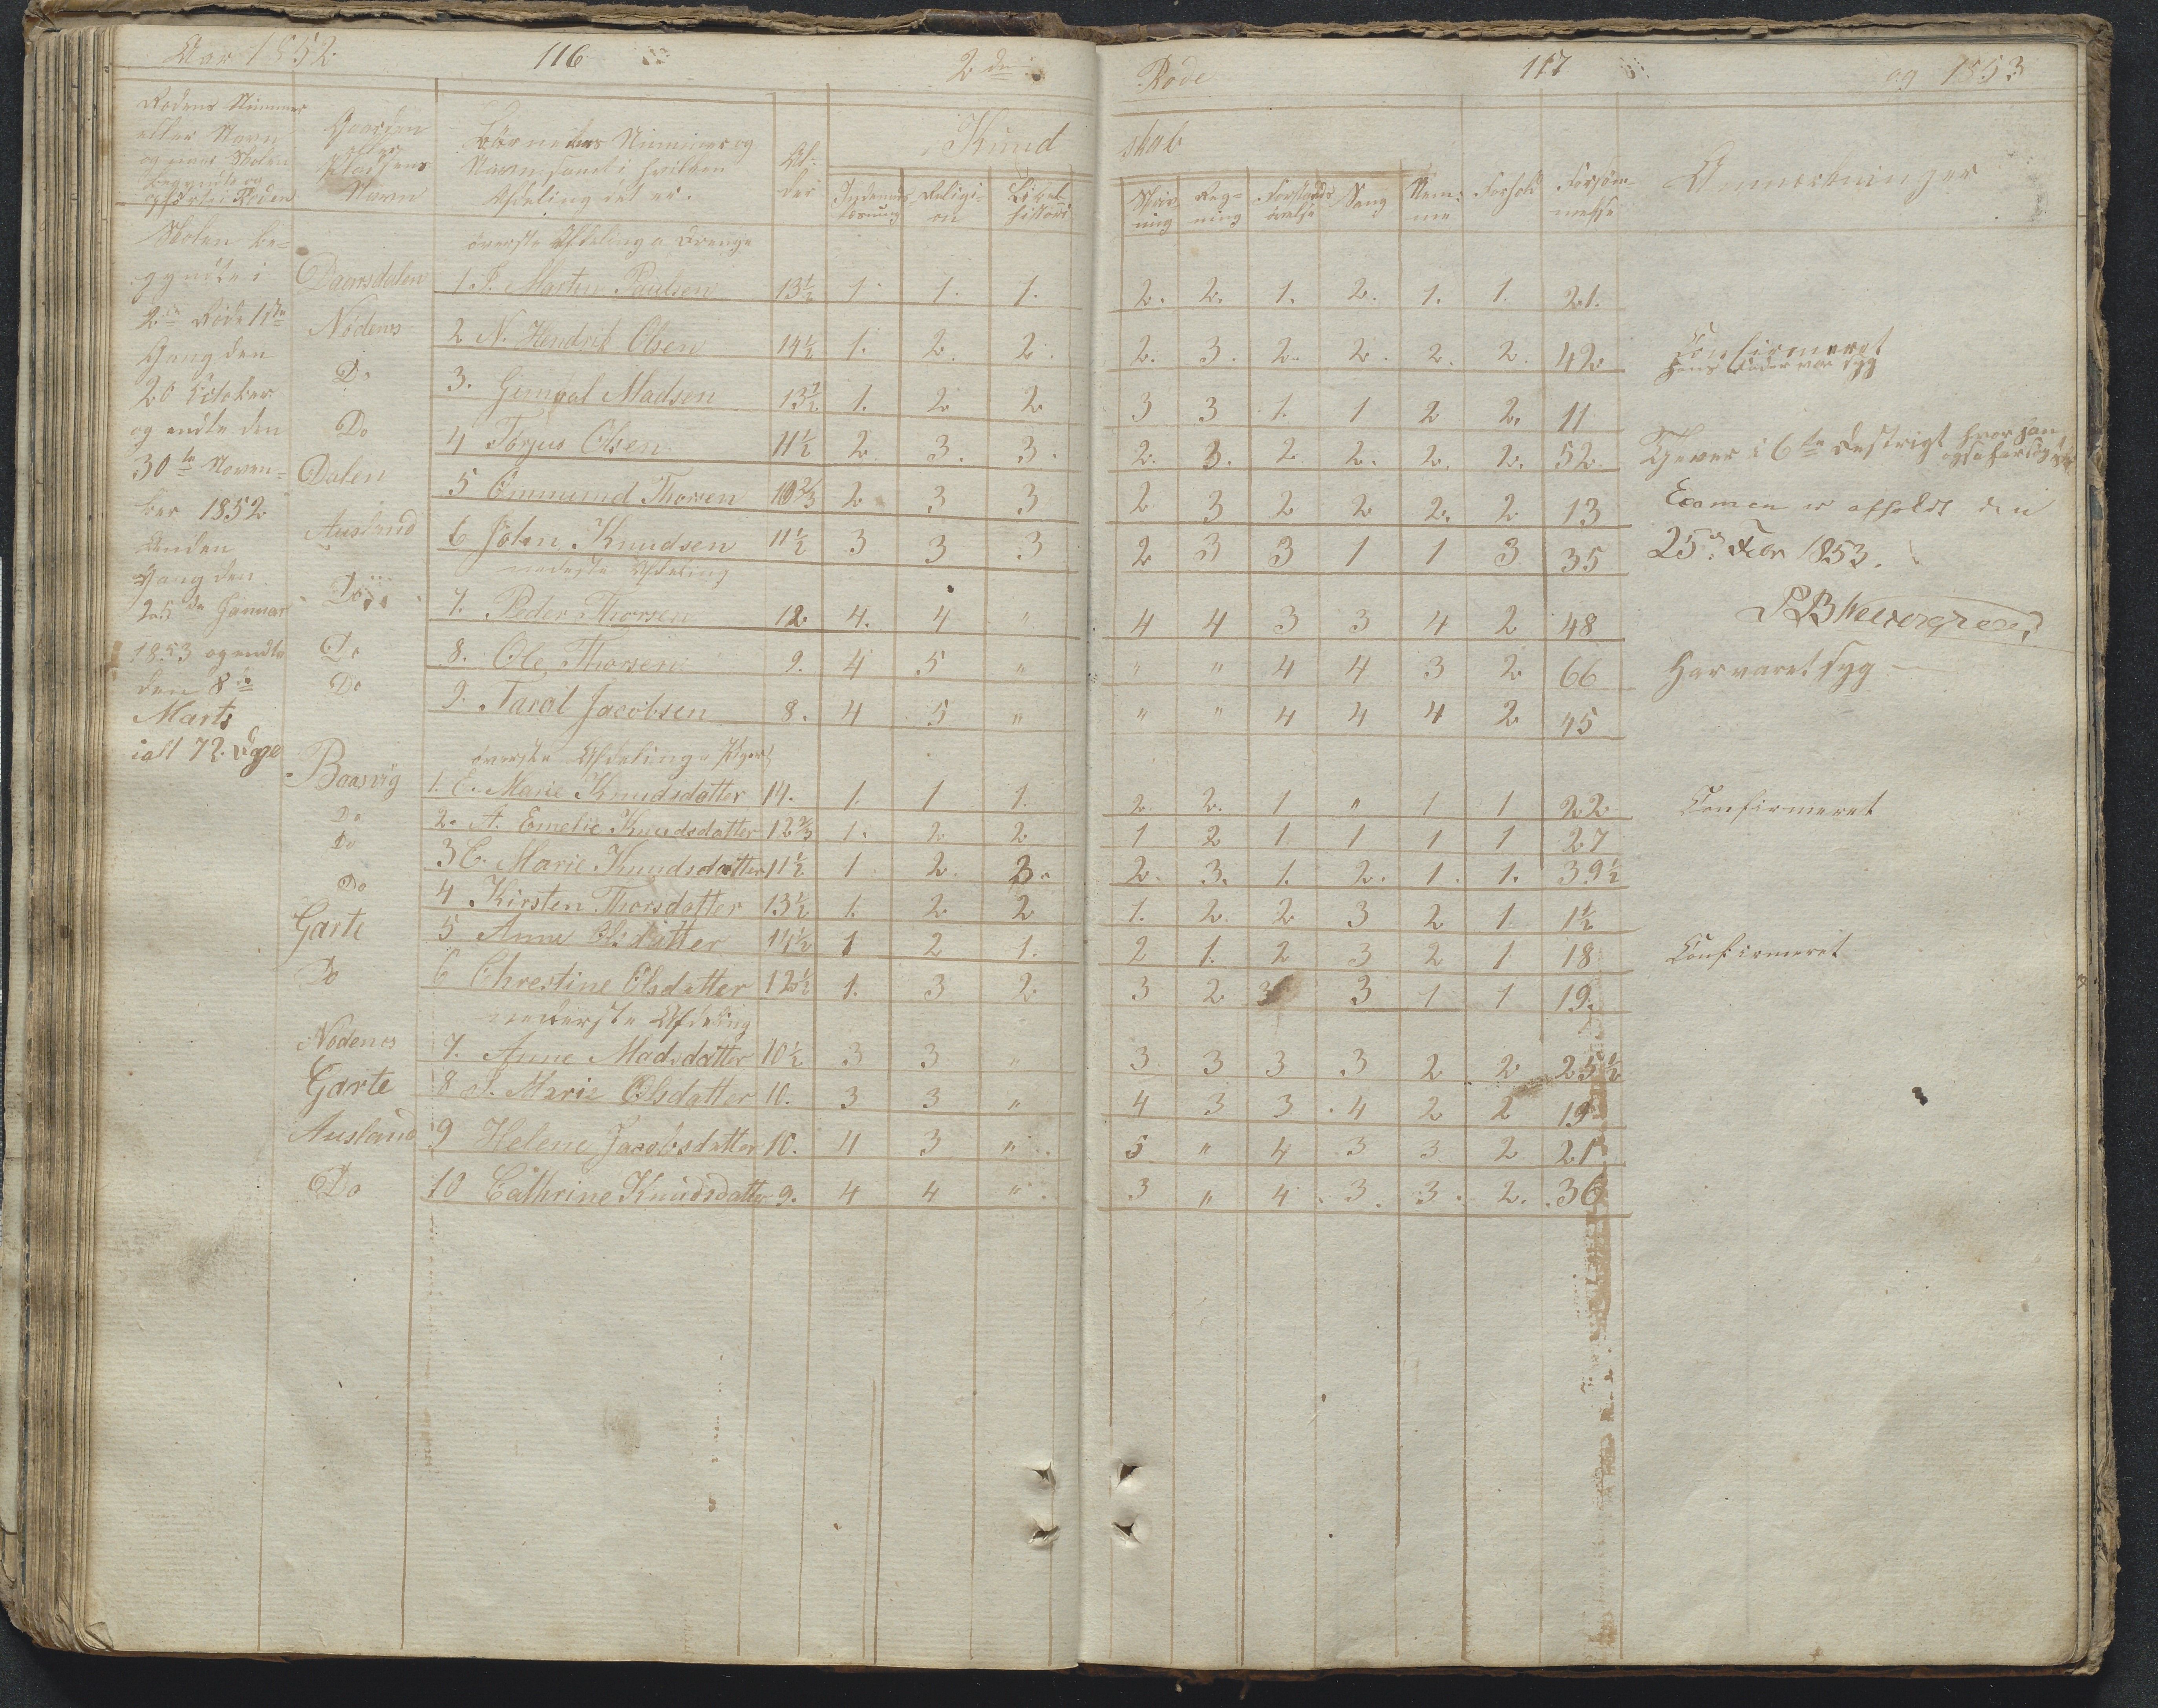 Aar 1852. 116 2den Rode 117 og 1853
Rodens Nummer eller Navn og naar Skolen begyndte og opførtes i Roden
Gaardens eller Pladsens Navn
Börnenes Nummer og Navn samt i hvilken Afdeling det er.
Al-der
Kund skab
Indenads-læsning Religi-on Bibel-historie Skriv-ning Reg-ning Forstands-øvelse Sang Nem-me Forhold Forsøm-melse Anmærkninger
Skolen be-
gyndte i
2den Rode 1ste
Gang den
20 October
og endte den
30te Novem-
ber 1852
Anden
Gang den
25de Januar
1853 og endte
den 8de
Marts
ialt 72. Dage
överste Afdeling a Drenge
Daarsdalen 1. J. Martin Paulsen 13½ 1. 1. 1. 2. 2. 1. 2. 1. 1. 21.
Nödenes 2 N. Hendrik Olsen 14½ 1. 2. 2. 2. 3. 2. 2. 2. 2. 42 Confirmeret
hans Fader var syg
Do 3. Gunval Madsen 13½ 1. 2 2 3 3 1. 1 2 2. 11
Do 4 Törjus Olsen 11½ 2 3. 3. 2. 3. 2 2. 2. 2. 52. i 6te Destrigt hvor han
Dalen 5 Ommund Thorsen 10⅔ 2 3 3 2 3 2 2 2. 2 13 Examen er afholdt den
Ausland 6 John Knudsen 11½ 3 3 3 2 3 3 1 1 3 35 25de Febr 1853.
nederste Afdeling
Do 7. Peder Thorsen 12 4. 4 " 4 4 3 3 4 2 48
Do 8. Ole Thorsen 9. 4 5 " " " 4 4 3 2 66 Har varet syg
Do 9. Taral Jacobsen 8. 4 5 " " " 4 4 4 2 45
överste Afdeling Piger
Baasvig 1. E. Marie Knudsdatter 14. 1. 1 1. 2 2. 1 " 1 1 22 Confirmeret
Do 2. A. Emelie Knudsdatter 12⅔ 1. 2 2 1 2 1 1 1 1 27
Do 3 C. Marie Knudsdatter 11½ 1 2. 3. 2. 3. 1. 2. 1. 1. 39½
Do 4 Kirsten Thorsdatter 13½ 1. 2 2 1. 2. 2 3 2 1 1½
Garte 5 Anne Olsdatter 14½ 1 2 1. 2 1. 2 3 2 1 18 Confirmeret
Do 6 Chrestine Olsdatter 12½ 1. 3 2. 3 2 3 3 1 1 19.
nederste Afdeling
Nödenes 7. Anne Madsdatter 10½ 3 3 " 3 3 3 3 2 2 25½
Garte 8 J. Marie Olsdatter 10. 3 3 " 4 3 3 4 2 2 19
Ausland 9 Helene Jacobsdatter 10. 4 3 " 5 " 4 3 3 2 21
Do 10 Cathrine Knudsdatter 9. 4 4 " 3 " 4 3 3. 2. 36